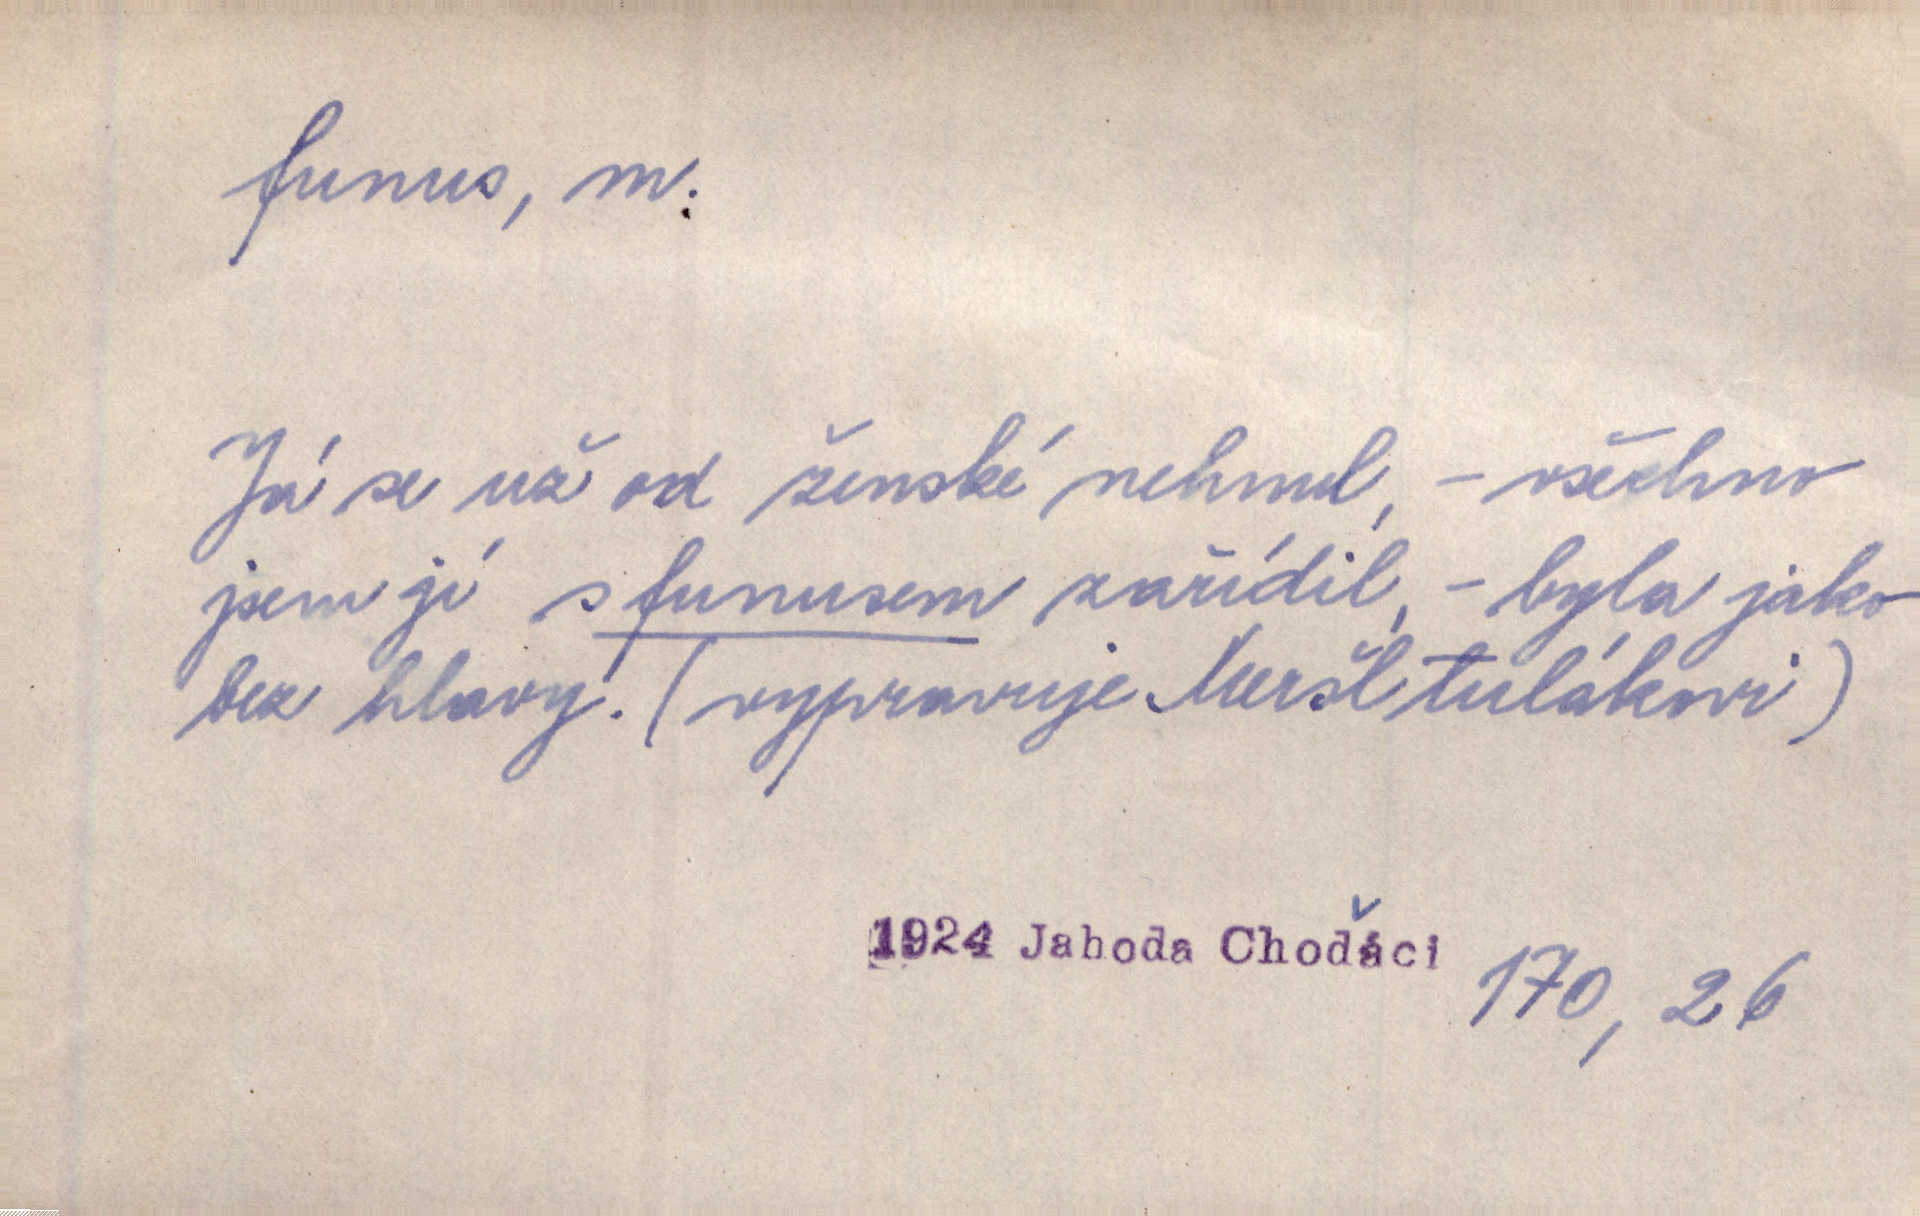 funus, m.
Já se už od ženské nehnul, - všechno
jsem jí s funusem zařídil, - byla jako
bez hlavy. (vypravuje Meršl tulákovi)
1924 Jahoda Choďáci
170, 26